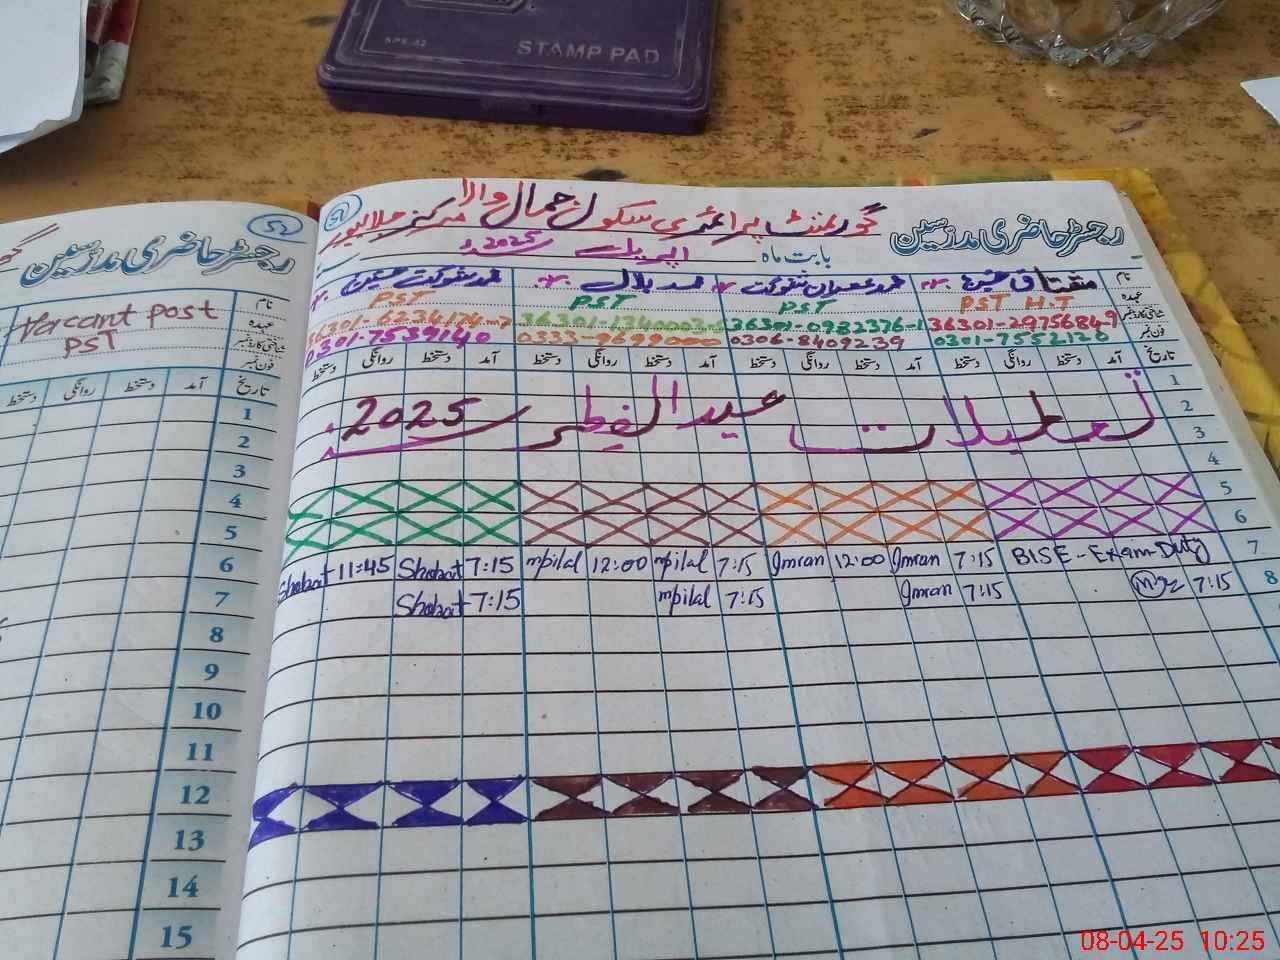 STAMP PAD
52
رجسٹر حاضری مدرسین
Vacant post
PST
نام
عہدہ
شناختی کارڈ نمبر
فون نمبر
تاریخ آمد دستخط روانگی دستخط
1
2
3
4
5
6
7
8
9
10
11
12
13
14
15
رجسٹر حاضری مدرسین گورنمنٹ پرائمری سکول جمال والا مرکز جلالپور
بابت ماہ اپریل 2025ء
نام مشتاق حسین محمد عمران شوکت محمد بلال محمد شوکت حسین
عہدہ PST H.T PST PST PST
شناختی کارڈ نمبر 36301-2975684-9 36301-0982376-1 36301-6234174-7
فون نمبر 0301-7552120 0306-8409239 0333-9699000 0301-7539140
تاریخ آمد دستخط روانگی دستخط آمد دستخط روانگی دستخط آمد دستخط روانگی دستخط آمد دستخط روانگی دستخط
1
2
3
تعطیلات عید الفطر 2025ء
4
5
6
7 BISE-Exam-Duty 7:15 Imran 12:00 Imran 7:15 mbilal 12:00 mbilal 7:15 Shokat 11:45 Shokat
8 7:15 7:15 Imran 7:15 mbilal 7:15 Shokat
08-04-25 10:25